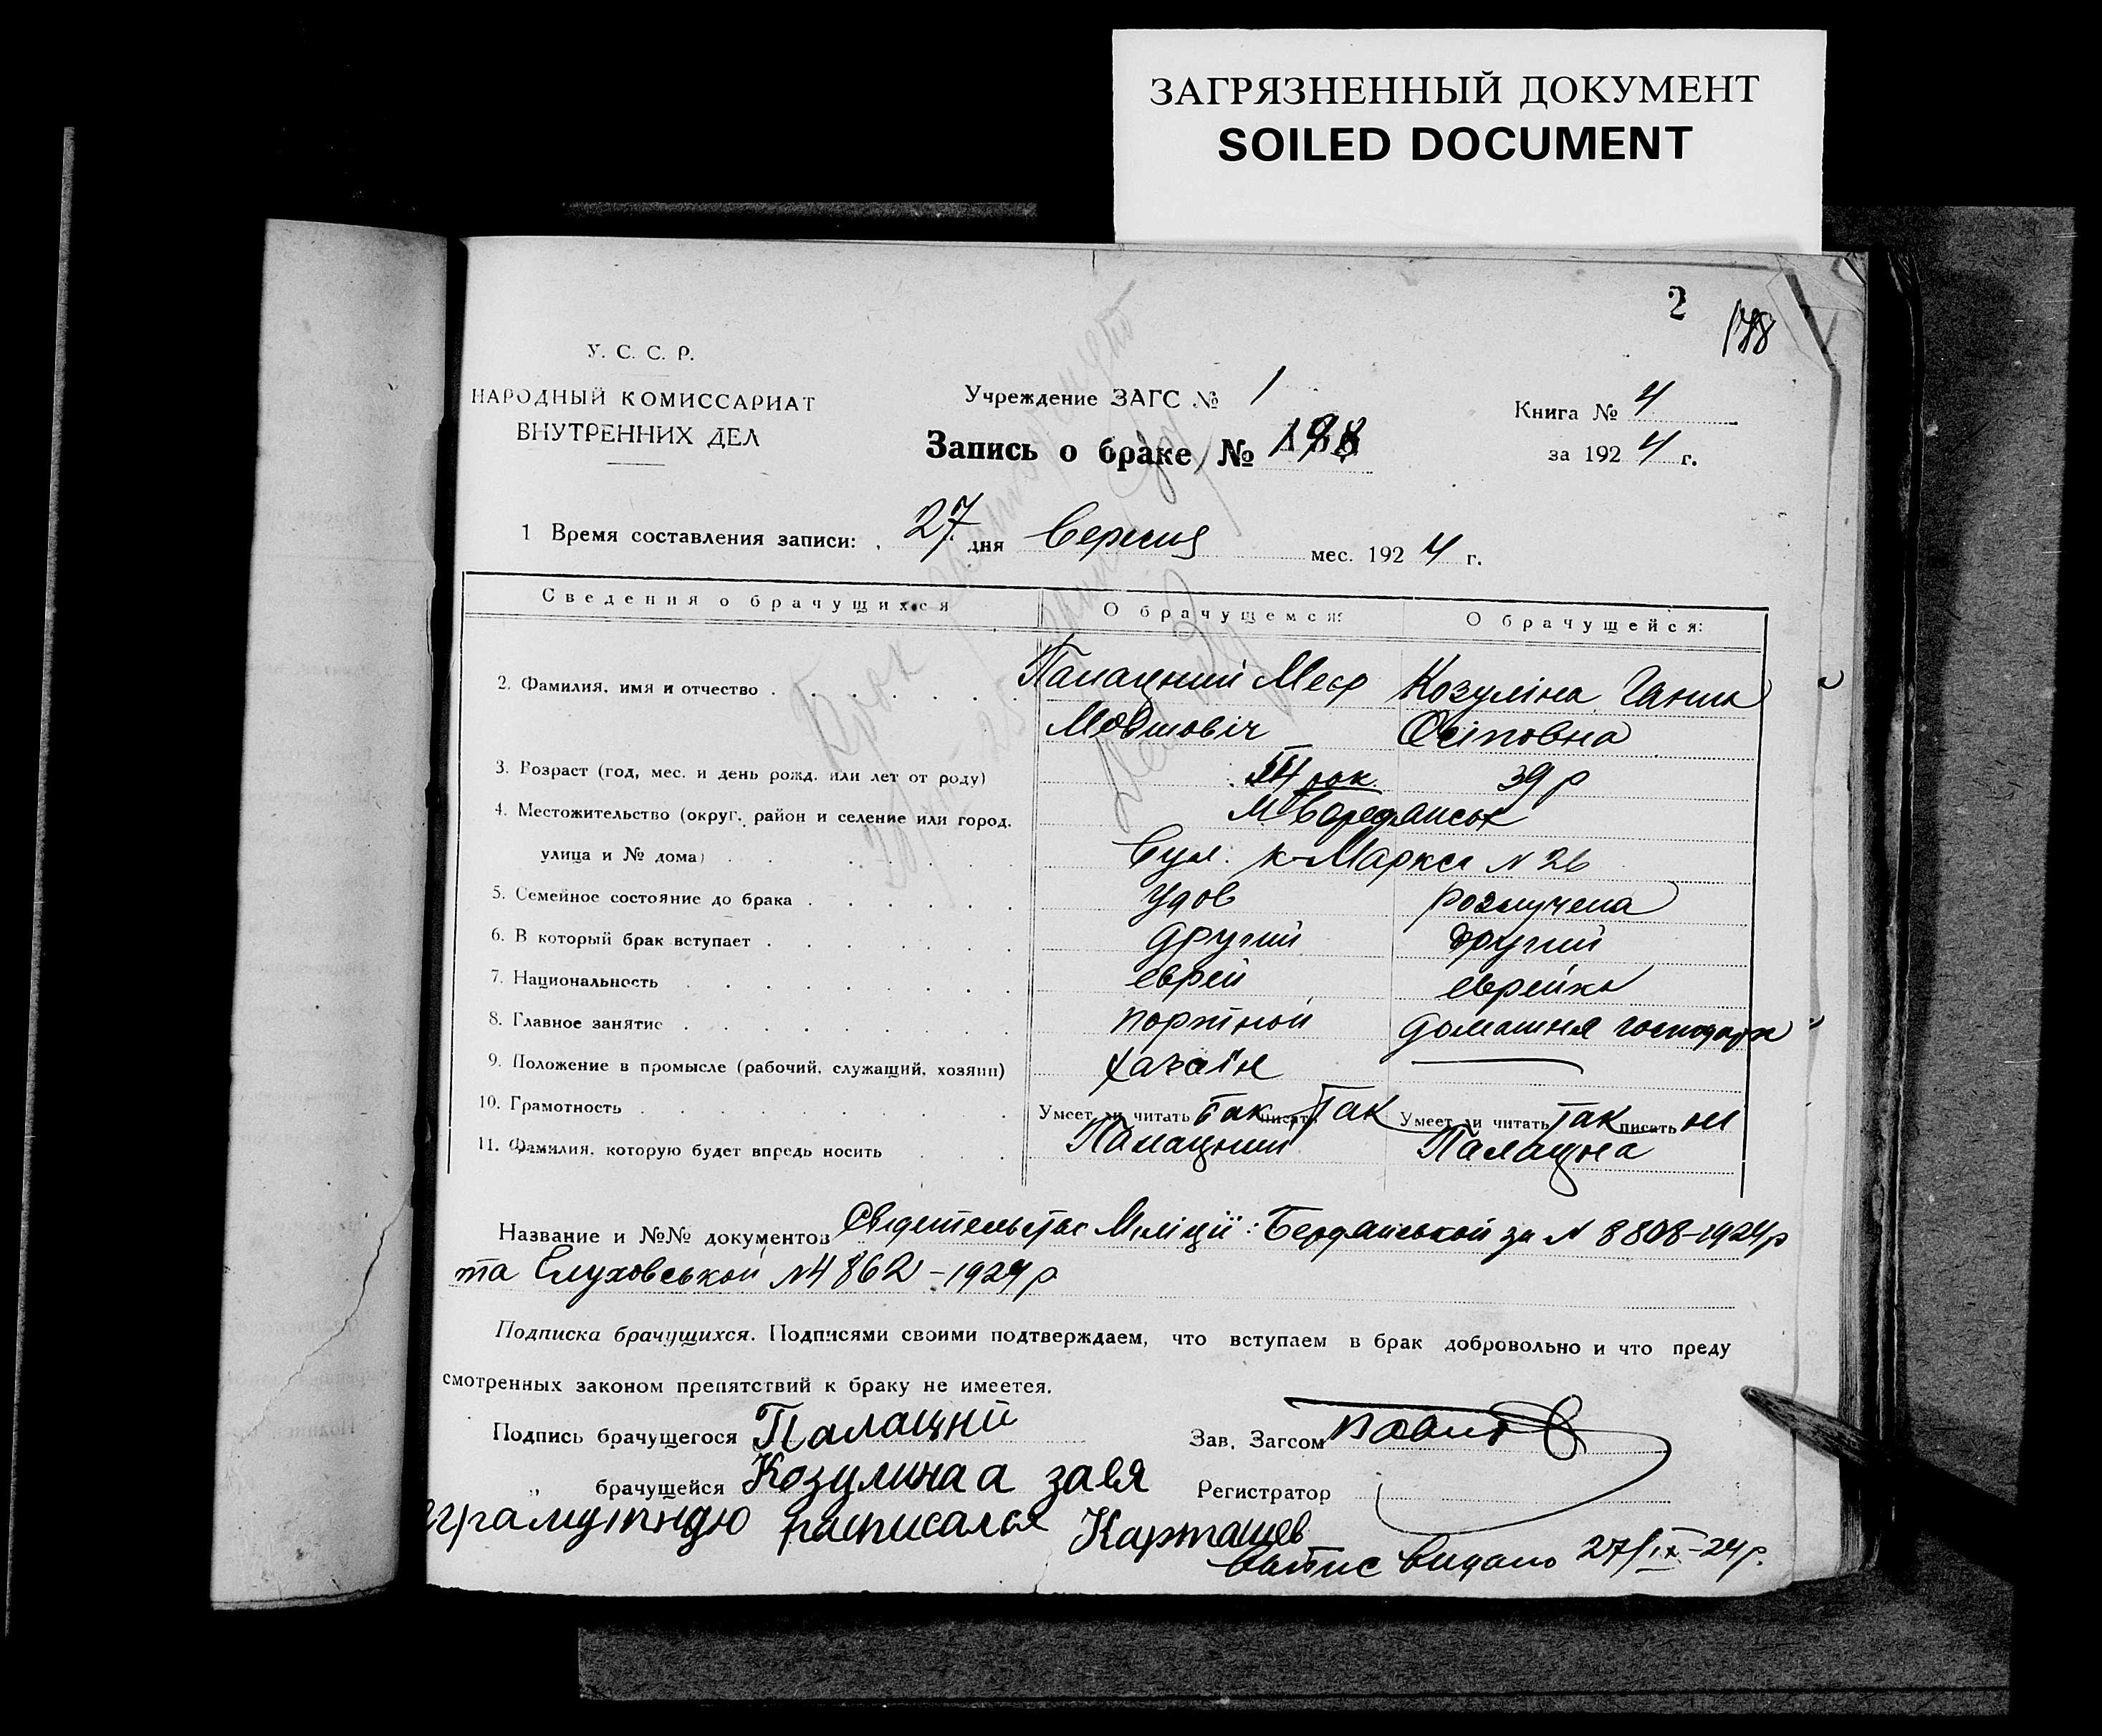 ЗАГРЯЗНЕННЫЙ ДОКУМЕНТ
SOILED DOCUMENT
2
У. С. С. Р.
НАРОДНЫЙ КОМИССАРИАТ
ВНУТРЕННИХ ДЕЛ
Учреждение ЗАГС № 1
Запись о браке № 198
Книга № 4
за 1924 г.
1 Время составления записи: 27 дня Вересня мес. 1924 г.
Сведения о брачущихся О брачущемся: О брачущейся:
2. Фамилия, имя и отчество Палацкий Козуліна Ганна
Мовшовіч Осіповна
3. Возраст (год, мес. и день рожд. или лет от роду) рок. 39 р
4. Местожительство (округ, район и селение или город, М Бердянськ
улица и № дома) Вул. К-Маркса N 26
5. Семейное состояние до брака удов розлучена
6. В который брак вступает другий другий
7. Национальность еврей еврейка
8. Главное занятие портной домашня господарк
9. Положение в промысле (рабочий, служащий, хозяин) хазаїн
10. Грамотность Умеет ли читать так писать так Умеет ли читать так писать ні
11. Фамилия, которую будет впредь носить Палацкий Палацка
Название и №№ документов Свідетельства Міліції: Бердянської за N 8808-1924 р
та N 4862-1924 р
Подписка брачущихся. Подписями своими подтверждаем, что вступаем в брак добровольно и что преду
смотренных законом препятствий к браку не имеется.
Подпись брачущегося Палацкий
Зав. Загсом
„ брачущейся Козулина а за ея
Регистратор
расписался Карташев
Витпис видано 27/IX-24 р.